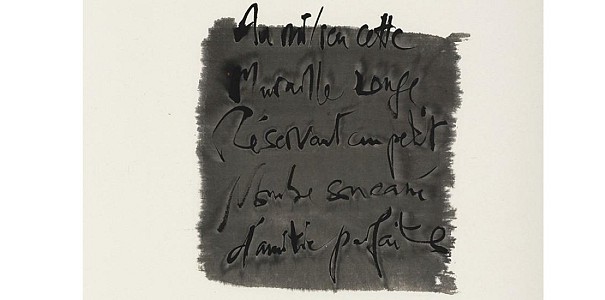 Au milieu cette
Muraille rouge
Réservant au petit
Nombre son carré
d'amitié parfaite